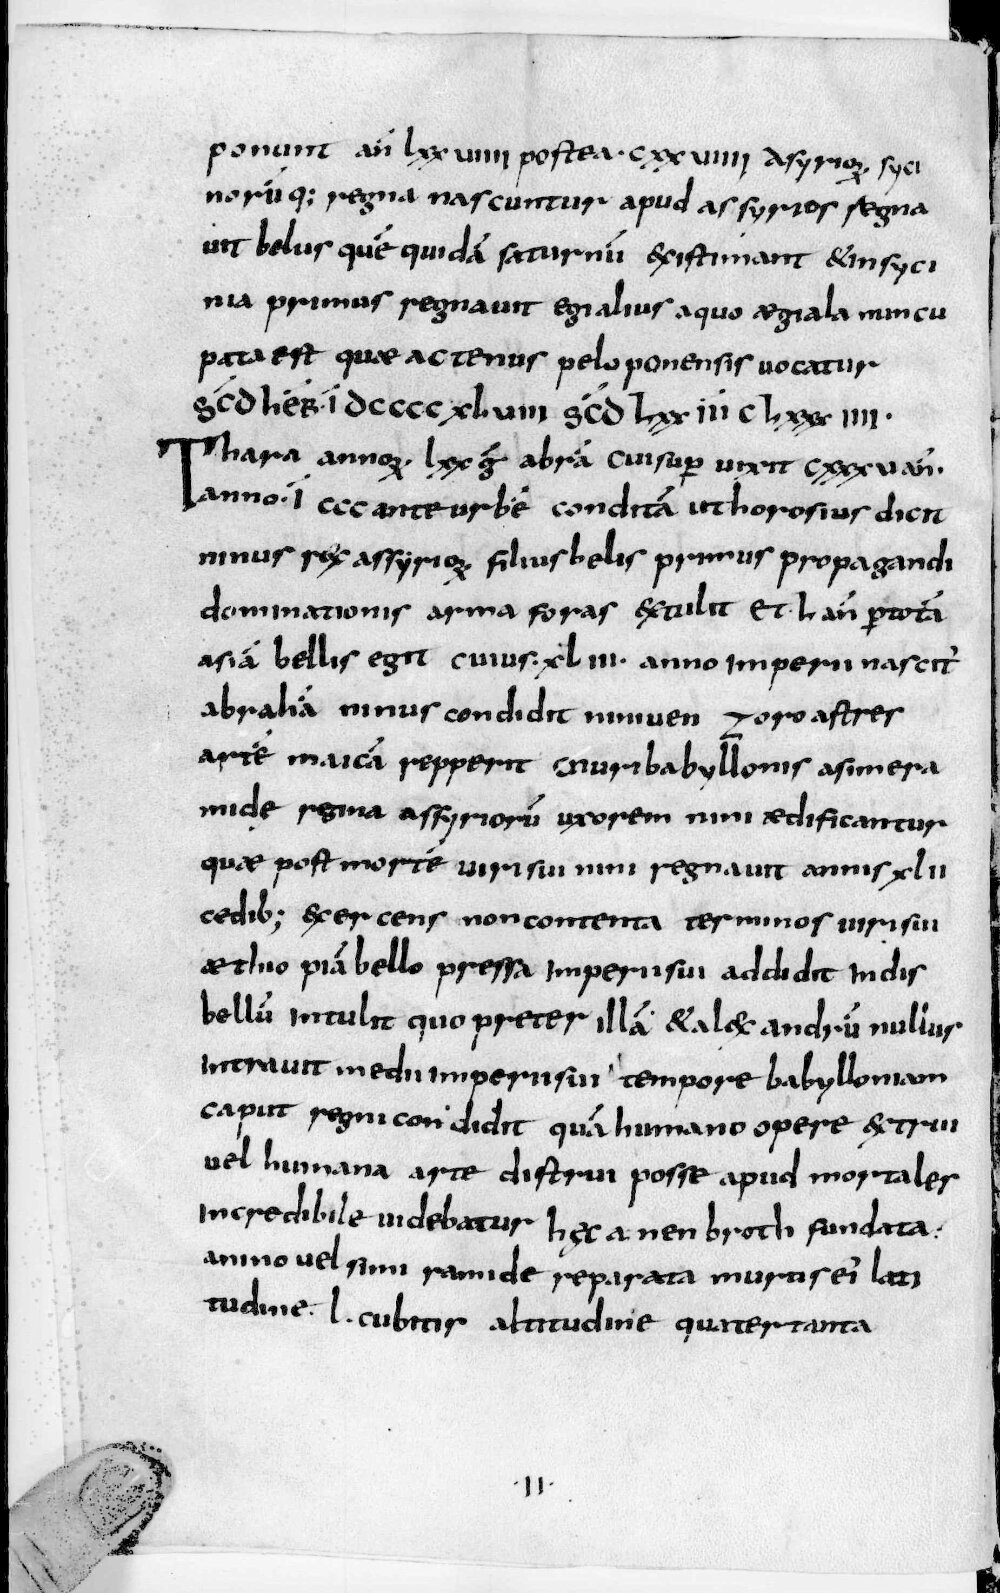 ponunt an̄ lxxviiii postea· cxxviiii Asyrioꝝ syci
norū q; regna nascuntur apud assyrios regna
uit belus quē quidā saturnū &xistimant &insyci
nia primus regnauit egialius aquo ægiala nuncu
pata est quæ actenus peloponensis uocatur
S̄C̄D hēR· ī dcccc xl·viii s̄c̄d lxx iii clxxx iiii·
Thara annoꝝ· lxx ḡ abrā cuisuꝑ uixit cxxxv an̄·
anno· ī ccc ante urbē conditā ut horosius dicit
ninus rex assyrioꝝ filius belis primus propagandi
dominationis arma foras &xtulit et· l· an̄ ꝑtotā
asiā bellis egit cuius· xl iii· anno Imperii nascit̄
abrahā ninus condidit niniuen Zoroastres
artē maicā repperit muri babyllonis asimera
mide regina assyriorū uxorem nini ædificantur
quæ post mortē uiri sui nini regnauit annis xlii
cedib; &xercens non contenta terminos uiri sui
æthio piā bello pressa Imperii sui addidit Indis
bellū Intulit quo preter illā &al&xandrū nullus
Intrauit medii Imperii sui tempore babylloniam
caput regni condidit quā humano opere &xtrui
uel humana arte distrui posse apud mortales
Incredibile uidebatur hęc a nenbroth fundata·
anino uel simi ramide reparata murus ei lati
tudine· l· cubitis altitudine quatertanta
·II·